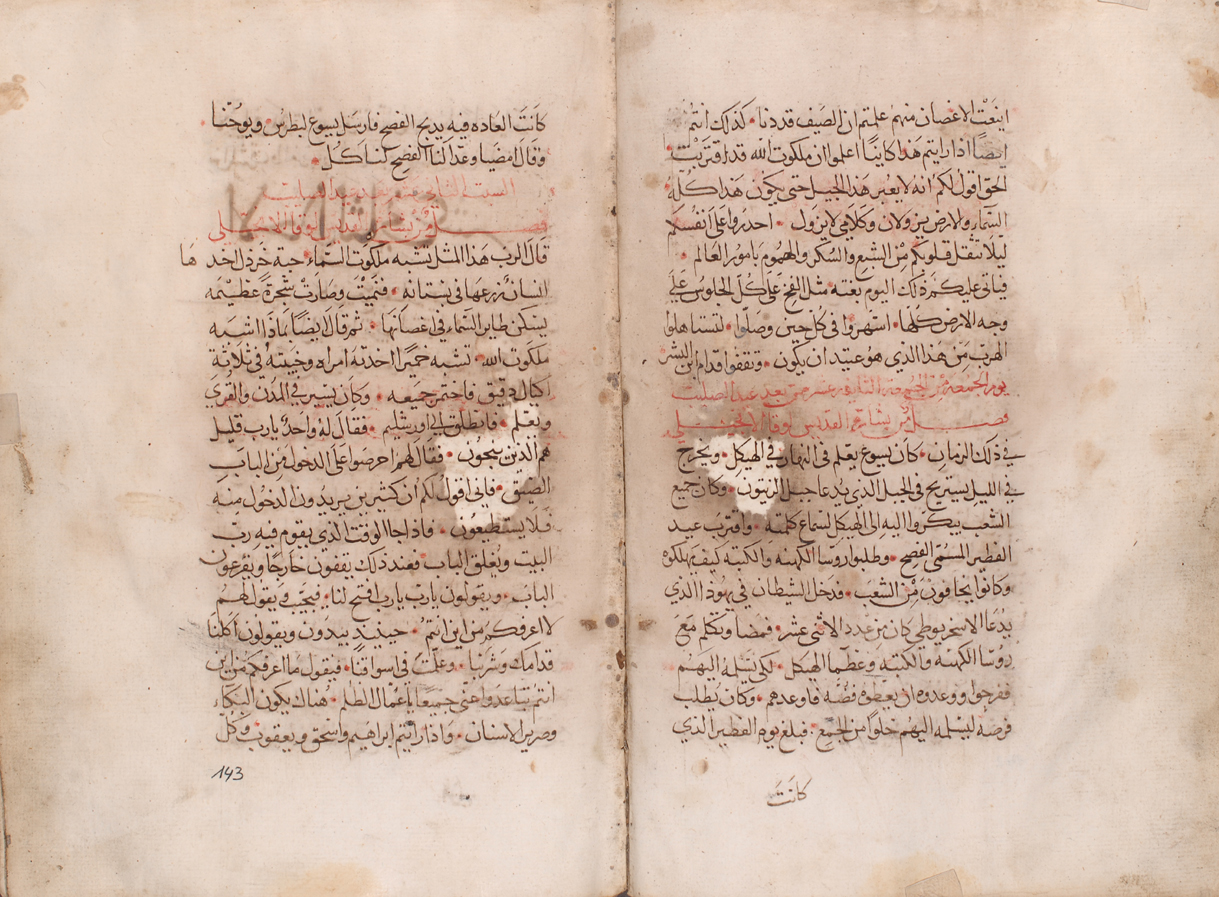 اينعت الاغصان منهم علمتم ان الصيف قد دنا • كذلك انتم
ايضًا اذا رايتم هذا كاينًا اعلموا ان ملكوت الله قد اقتربت •
الحق اقول لكم انه لا يعبر هذا الجيل حتى يكون هذا كله •
السماء والارض يزولان وكلامي لا يزول • احدروا على انفسكم
ليلا تثقل قلوبكم من الشبع والسكر والهموم بامور العالم •
فياتي عليكم ذلك اليوم بغته مثل الفخ على كل الجلوس على
وجه الارض كلها • اسهروا في كل حين وصلوا • لتستاهلوا
الهرب من هذا الذي هو عتيد ان يكون • وتقفوا قدام ابن البشر
يوم الجمعه من الجمعه عشر من بعد عيد الصليب
فصل من بشارة القديس لوقا الانجيلي
في ذلك الزمان • كان يسوع يعلم في النهار في الهيكل • ويخرج
في الليل يستريح في الجبل الذي يدعا جبل الزيتون • وكان جميع
الشعب يبكروا اليه الى الهيكل لسماع كلمته • واقترب عيد
الفطير المسمى الفصح • وطلبوا روسا الكهنه والكتبه كيف يهلكوه
وكانوا يخافون من الشعب • فدخل الشيطان في يهوذا الذي
يدعا الاسخريوطي كان من عدد الاثني عشر • فمضا وتكلم مع
روسا الكهنه والكتبه وعظما الهيكل • لكي يسلمه اليهم
ففرحوا ووعدوه ان يعطوه فضه فاوعدهم • وكان يطلب
فرصه ليسلمه اليهم خلوًا من الجمع • فبلغ يوم الفطير الذي
كانت
كانت العاده فيه يدبح الفصح فارسل يسوع لبطرس ويوحنا
وقال امضيا وعدا لنا الفصح لناكل •
السبت الثالث عشر بعد عيد الصليب
فصل من بشارة القديس لوقا الانجيلي
قال الرب هذا المثل تشبه ملكوت السماء • حبة خردل اخد ها
انسان زرعها في بستانه • فنميت وصارت شجرة عظيمه
يسكن طاير السماء في اغصانها • ثم قال ايضًا بماذا اشبه
ملكوت الله • تشبه خميرًا اخدته امراه وخبيته في ثلاثة
اكيال دقيق فاختمر جميعه • وكان يسير في المدن والقرى
ويعلم • فانطلق الى اورشليم • فقال له واحدٌ يا رب قليل
هم الذين ينجون • فقال لهم احرصوا على الدخول من الباب
الضيق • فاني اقول لكم ان كثيرين يريدون الدخول منه
فلا يستطيعون • فاذا جا الوقت الذي يقوم فيه رب
البيت ويغلق الباب فعند ذلك يقفون خارجًا ويقرعون
الباب • ويقولون يارب يارب افتح لنا • فيجيب ويقول لهم
لا اعرفكم من اين انتم • حينيدٍ يبدون ويقولون اكلنا
قدامك وشربنا • وعلمت في اسواقنا • فيقول ما اعرفكم من اين
انتم تباعدوا عني جميعًا يا عمال الظلم • هناك يكون البكاء
وصرير الاسنان • واذا رايتم ابراهيم واسحق ويعقوب وكل
143